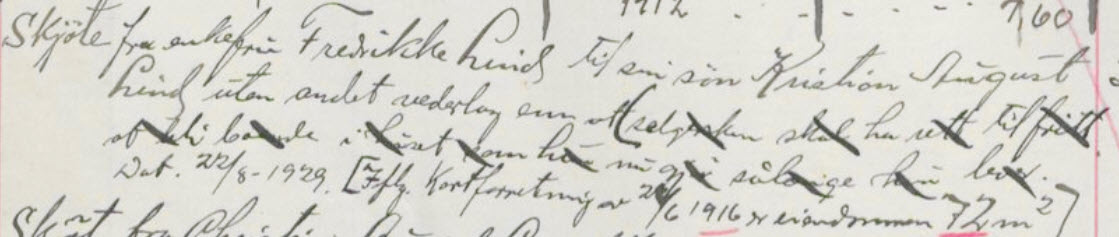 1912 . . . . . 7,60
Skjöte fra enkefru Fredrikke Lind til sin sön Kristian August
Lind uten andet vederlag enn at (selgersken skal ha rett til fritt
at bli boende i huset som hun nu gjör sålænge hun lever.
Dat. 22/8-1929. [Iflg. Kartforretning av 2/6 1916 er eiendommen 72 m2]
Skjöt fra Christian